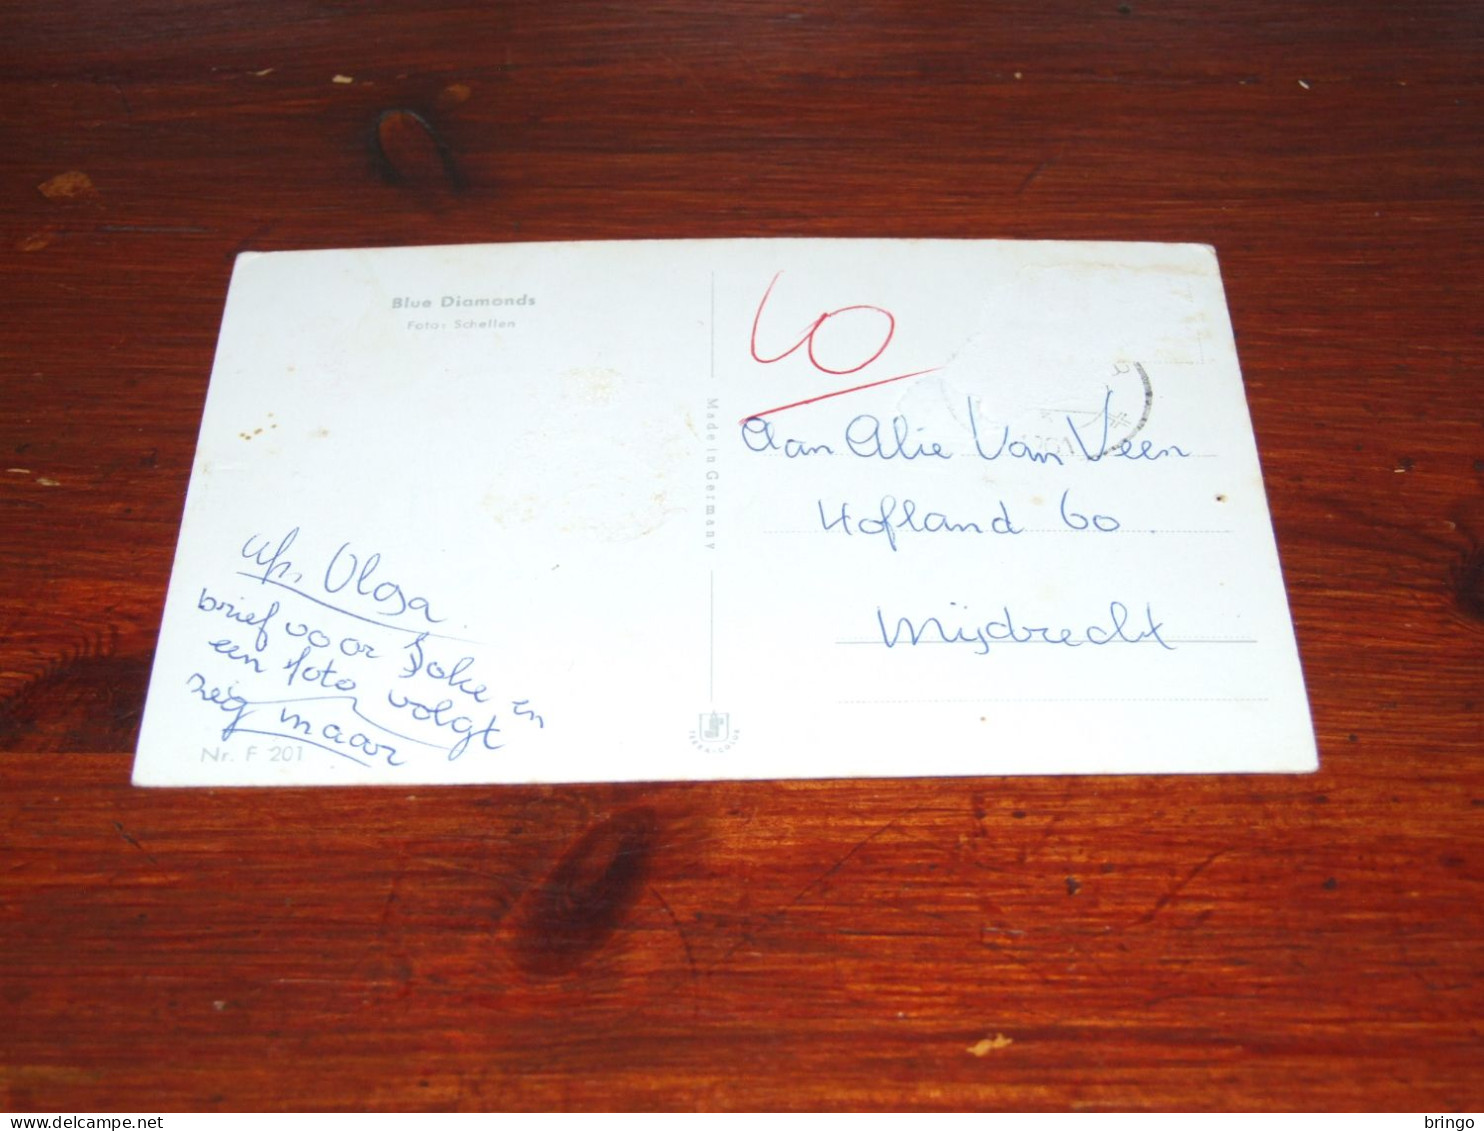 Blue Diamonds
Foto: Schellen
60
Aan Alie Van Veen
Hofland 60
Mijdrecht
Made in Germany
Olga
brief voor Joke en
een foto volgt
zeg maar
Nr. F 201
TERRA-COLOR
bringo